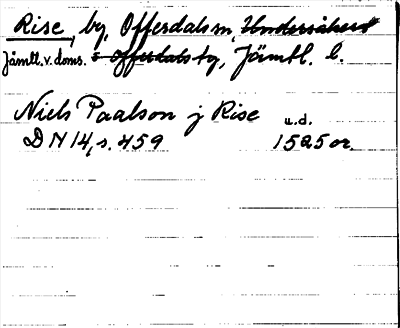 Rise, by, Offerdals sn, Undersåkers
Jämtl. v. doms. o Offerdals tg, Jämtl. l.
Niels Paalson j Rise u.d.
DN 14, s. 459 1525 or.